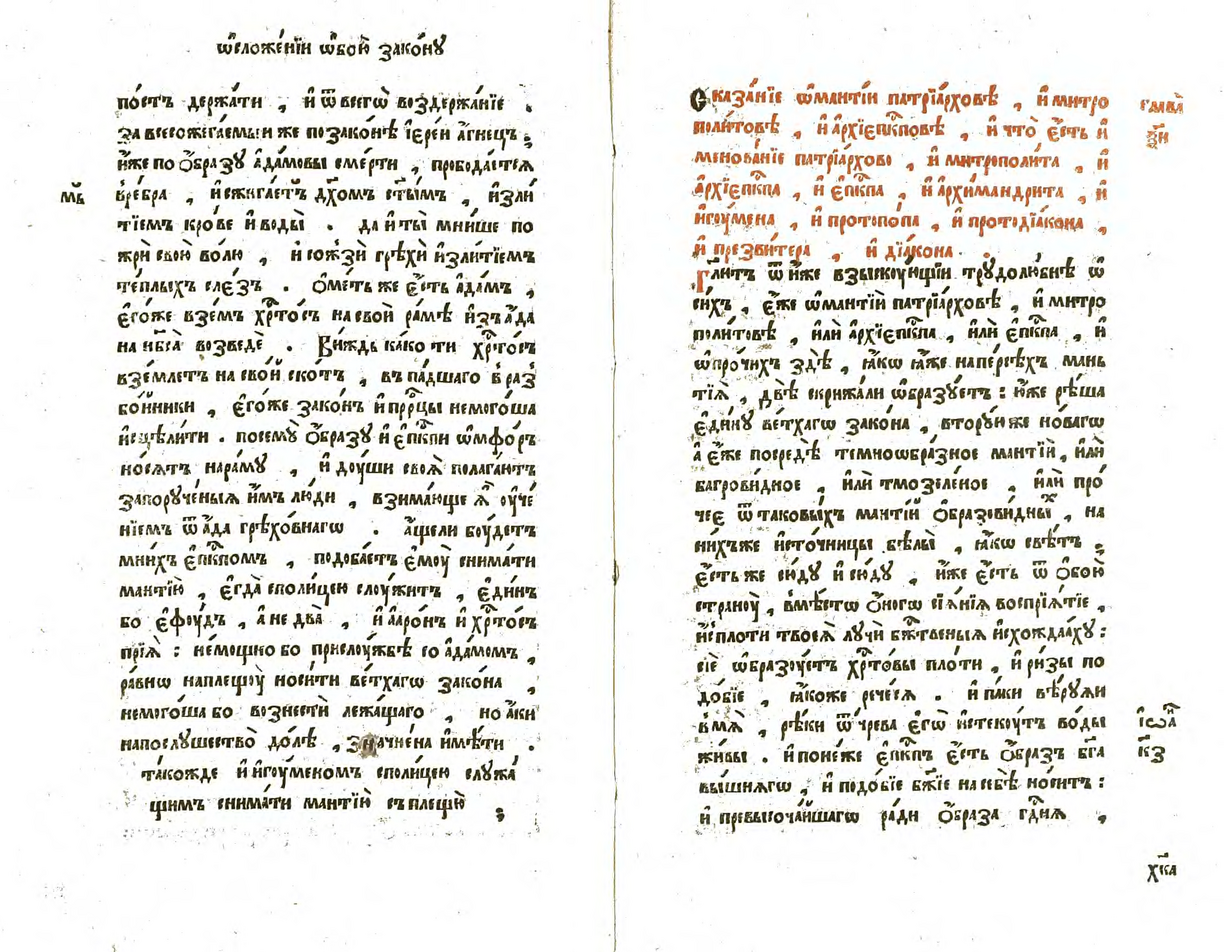 ѡ҆сложе́нїи ѡ҆бою̀ зако́нꙋ
по́стъ держа́ти , и҆ ѿ всегѡ̀ воздержа́нїе .
за всесожега́емыи же по зако́нѣ і҆ере́и а҆́гнецъ .
и҆́же по ѻ҆́бразꙋ а҆да́мовы сме́рти , пробода́етсѧ
мв҃
в̾ре́бра , и҆ сжига́етъ дх҃омъ ст҃ы́мъ , и҆зли
тїемъ кро́ве и҆ воды̀ . да и҆ ты̀ мни́ше по
жрѝ свою̀ во́лю , и҆ сожзѝ грѣхѝ и҆зли́тїемъ
те́плыхъ сле́зъ . ѻ҆мет же є҆́сть а҆да́мъ ,
є҆го́же взе́мъ хрⷭ҇то́съ на сво́й ра́мѣ и҆зъ а҆́да
на нб҃са̀ возведѐ . Ви́ждь ка́ко ти хрⷭ҇то́съ
взе́млетъ на сво́й ско́тъ , въ па́дшаго в̾ раз
бо́йники , є҆го́же зако́нъ и҆ прⷪ҇ро́цы немого́ша
и҆сцѣли́ти . посемꙋ̀ ѻ҆́бразꙋ и҆ є҆пⷭ҇кпи ѡ҆мфо́ръ
но́сѧтъ нара́мꙋ , и҆ до́ꙋши своѧ̀ полага́ютъ
запорꙋче́ныѧ и҆́мъ лю́ди , взима́юще ѧ҆̀ оу҆че
нїемъ ѿ а҆́да грѣхо́внагѡ . а҆́щели бꙋ́детъ
мни́хъ є҆пⷭ҇кпомъ , подоба́етъ є҆мꙋ̀ снима́ти
мантїю̀ , є҆гда̀ сполицею слꙋ́житъ , є҆ди́нъ
бо є҆фꙋ́дъ , а҆ не два̀ , и҆ а҆аро́нъ и҆ хрⷭ҇то́съ
прїѧ̀ : немо́щно бо прислꙋ́жбѣ со а҆да́момъ ,
ра́внѡ наплещꙋ̀ носи́ти ве́тхагѡ зако́на ,
немого́ша бо вознестѝ лежа́щаго , но а҆́ки
напослꙋ́шество до́лѣ , значе́на и҆мѣ́ти .
та́кожде и҆ и҆гꙋ́меномъ сполицею слꙋжа
щимъ снима́ти мантїю̀ съ плещїю̀
Сказа́нїе ѡ҆ манті́и патрїа́рховѣ , и҆ митро
поли́товѣ , и҆ а҆рхїепⷭ҇кповѣ , и҆ что̀ є҆́сть и҆
менова́нїе патрїа́рхово , и҆ митрополи́та , и҆
а҆рхїепⷭ҇кпа , и҆ є҆пⷭ҇кпа , и҆ а҆рхимандри́та , и҆
и҆гꙋ́мена , и҆ протопо́па , и҆ протодїа́кона ,
и҆ презви́тера , и҆ дїа́кона .
Гл҃итъ ѿ и҆́же взыскꙋ́ющїи трꙋдолю́бнѣ ѡ҆
си́хъ , є҆́же ѡ҆ манті́й патрїа́рховѣ , и҆ митро
поли́товѣ , и҆лѝ а҆рхїепⷭ҇кпа , и҆лѝ є҆пⷭ҇кпа , и҆
ѡ҆ про́чихъ здѣ̀ , ꙗ҆́кѡ ꙗ҆̀же на пе́рсѣхъ мань
ті́ѧ , двѣ̀ скрижа́ли ѡ҆бразꙋ́етъ : и҆́же рѣ́ша
є҆ди́нꙋ ве́тхагѡ зако́на , вторꙋ́ю же но́вагѡ
а҆ є҆́же посредѣ̀ темноѡбра́зное манті́й , и҆лѝ
багрови́дное , и҆лѝ тмозеле́ное , и҆лѝ про́
чее ѿ таковы́хъ манті́й ѻ҆бразови́дныⷯ , на
ни́хъже и҆сто́чницы бѣлы̀ , ꙗ҆́кѡ свѣ́тъ ,
є҆́сть же сю́дꙋ и҆ сю́дꙋ , и҆́же є҆́сть ѿ ѻ҆бою̀
странꙋ̀ , вмѣ́стѡ ѻ҆́ного сїѧ́нїѧ воспрїѧ́тїе ,
и҆с̾ пло́ти твоеѧ̀ лꙋчѝ бжⷭ҇твеныѧ и҆схожда́ахꙋ :
сїѐ ѡ҆бразꙋ́етъ хрⷭ҇то́вы пло́ти , и҆ ри́зы по
до́бїе , ꙗ҆́коже рече́сѧ . и҆ па́ки вѣ́рꙋѧи
в̾мѧ̀ , рѣ́ки ѿ чре́ва є҆гѡ̀ и҆стекꙋ́тъ воды̀
живы . и҆ поне́же є҆пⷭ҇кпъ є҆́сть ѻ҆́бразъ бг҃а
вы́шнѧгѡ , и҆ подо́бїе бж҃їе на себѣ̀ но́ситъ :
и҆ превысоча́йшагѡ ра́ди ѻ҆́браза гдⷭ҇нѧ ,
і҆ѡа҃
к҃з
хк҃а